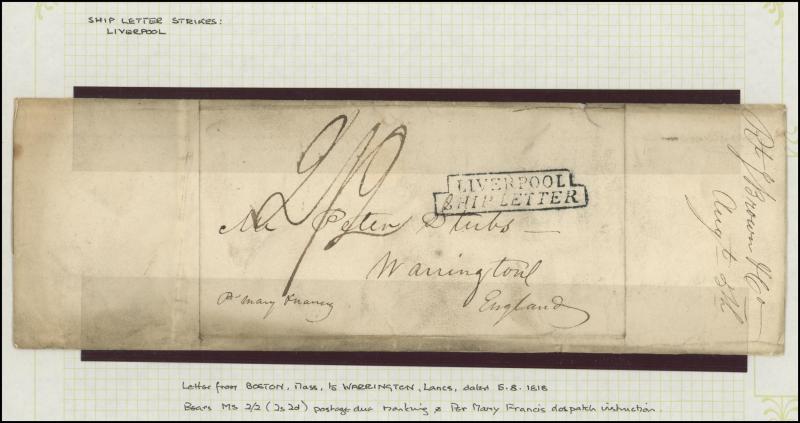 SHIP LETTER STRIKES:
LIVERPOOL
2/2
LIVERPOOL
SHIP LETTER
Mr Peter Stubs
Warrington
England
Pr Mary Francis
Brown & Co
Augt 5th
Letter from BOSTON, Mass, to WARRINGTON, Lancs, dated 5.8.1818
Bears MS 2/2 (2s2d) postage due marking & Per Mary Francis despatch instruction.